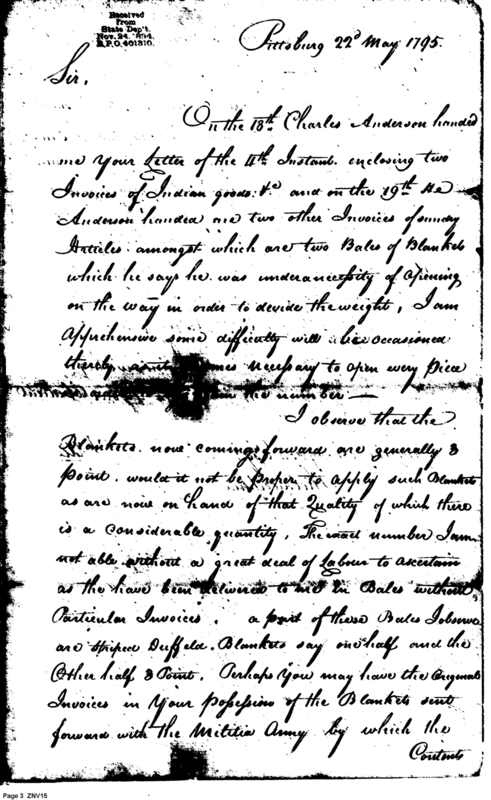 Received
from
State Dep't.
Nov. 24. 1894.
R.P.O. 401310.
Pittsburg 22d May 1795.
Sir,
On the 18th Charles Anderson handed
me your Letter of the 4th Instant. enclosing two
Invoices of Indian goods &c and on the 19th
Anderson handed me two other Invoices of sundry
Articles amongst which are two Bales of Blankets
which he says he was under a necessity of opening
on the way in order to devide the weight, I am
apprehensive some difficulty will be occasioned
thereby necessary to open every piece
the number —
I observe that the
Blankets now coming forward are generally 3
point. would it not be proper to apply such Blankets
as are now on hand of that Quality of which there
is a considerable quantity, The exact number I am
not able without a great deal of Labour to ascertain
as the have been delivered to me in Bales without
Particular Invoices. a part of these Bales I observe
are striped Duffeld Blankets say one half and the
Other half 3 Point. Perhaps you may have the Original
Invoices in your possession of the Blankets sent
forward with the Militia Army by which the
Contents
Page 3 ZNV15